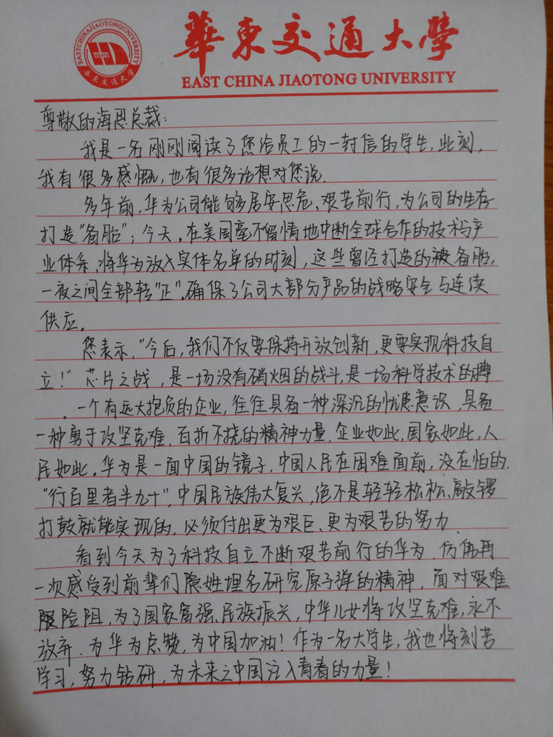 華東交通大學
EAST CHINA JIAOTONG UNIVERSITY
尊敬的海思总裁:
我是一名刚刚阅读了您给员工的一封信的学生,此刻,
我有很多感慨,也有很多话想对您说.
多年前,华为公司能够居安思危、艰苦前行,为公司的生存
打造"备胎";今天,在美国毫不留情地中断全球合作的技术与产
业体系,将华为放入实体名单的时刻,这些曾经打造的备胎,
一夜之间全部转"正",确保了公司大部分产品的战略安全与连续
供应.
您表示,"今后,我们不仅要保持开放创新,更要实现科技自
立!"芯片之战,是一场没有硝烟的战斗,是一场科学技术的
.一个有远大抱负的企业,往往具备一种深沉的忧患意识,具备
一种勇于攻坚克难、百折不挠的精神力量,企业如此,国家如此,人
民如此.华为是一面中国的镜子,中国人民在困难面前,没在怕的.
"行百里者半九十",中国民族伟大复兴,绝不是轻轻松松、敲锣
打鼓就能实现的,必须付出更为艰巨、更为艰苦的努力.
看到今天为了科技自立不断艰苦前行的华为,仿佛再
一次感受到前辈们隐姓埋名研究原子弹的精神,面对艰难
险阻,为了国家富强、民族振兴,中华儿女将攻坚克难,永不
放弃.为华为点赞,为中国加油!作为一名大学生,我也将刻苦
学习,努力钻研,为未来之中国注入青春的力量!